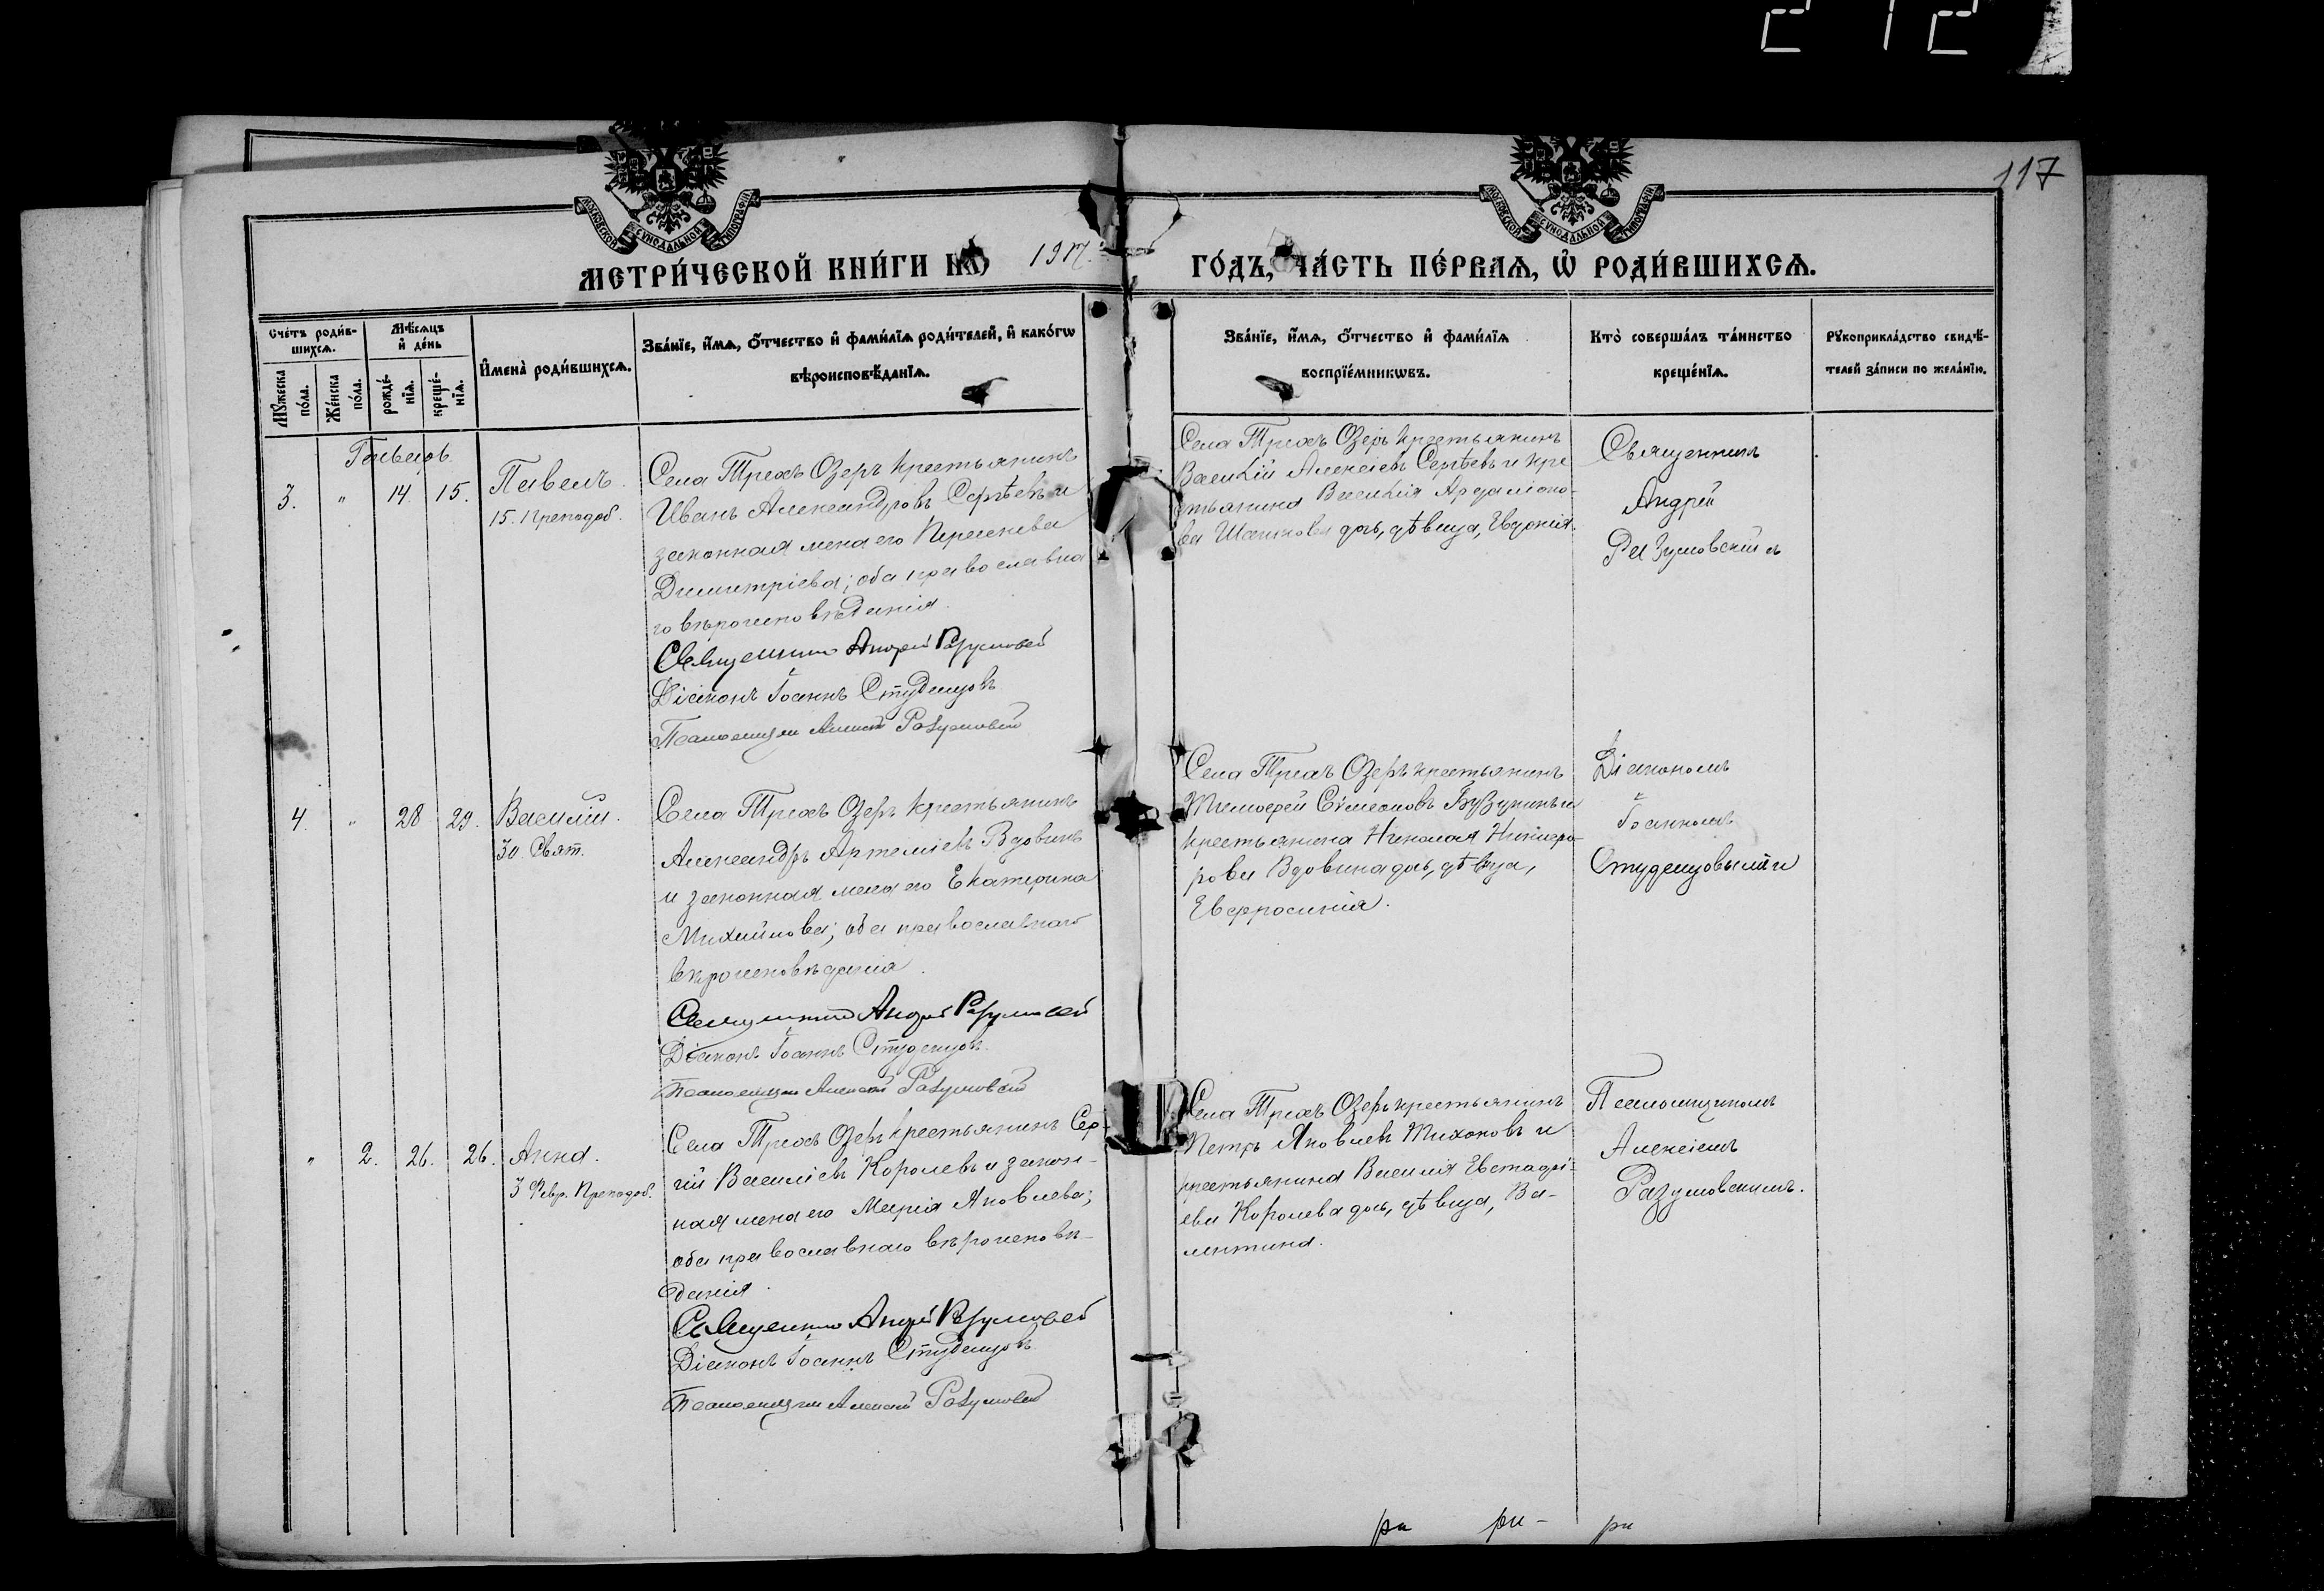 212
117
МОСКОВСКОЙ СѴНОДАЛЬНОЙ ТИПОГРАФІИ
МОСКОВСКОЙ СѴНОДАЛЬНОЙ ТИПОГРАФІИ
МЕТРИ́ЧЕСКОЙ КНИ́ГИ НА̀ 1917
ГО́ДЪ, ЧА́СТЬ ПЕ́РВАѦ, Ѡ҆ РОДИ́ВШИХСѦ.
Сче́тъ роди́в-
шихсѧ.
Мꙋ́жеска
по́ла.
Же́нска
по́ла.
Мѣ́сѧцъ
и҆ де́нь
рожде́-
нїѧ.
креще́-
нїѧ.
И҆мена̀ роди́вшихсѧ.
Зва́нїе, и҆́мѧ, ѻ҆́тчество и҆ фами́лїѧ роди́телей, и҆ како́гѡ
вѣроисповѣ́данїѧ.
Зва́нїе, и҆́мѧ, ѻ҆́тчество и҆ фами́лїѧ
воспрїе́мникѡвъ.
Кто̀ соверша́лъ та́инство
креще́нїѧ.
Рꙋкоприкла́дство свидѣ́-
телей за́писи по жела́нїю.
3. " 14. 15.
Павелъ.
15. Преподоб.
Села Трехъ Озеръ крестьянинъ
Иванъ Александровъ Сергѣевъ и
законная жена его
Димитріева; оба православна
го вѣроисповѣданія.
Священникъ Андрей Разумовскій
Діаконъ Іоаннъ Студенцовъ
Псаломщикъ Алексій Разумовскій
Села Трехъ Озеръ крестьянинъ
Василій Алексіевъ Сергѣевъ и кре
стьянина Василія Ардаліоно-
ва дочь, дѣвица, Евдокія.
Священникъ
Андрей
Разумовскій
4. " 28 29.
Василій.
30. Свят.
Села Трехъ Озеръ крестьянинъ
Александръ Артеміевъ Вдовинъ
и законная жена его Екатерина
Михайлова; оба православнаго
вѣроисповѣданія.
Священникъ Андрей Разумовскій
Діаконъ Іоаннъ Студенцовъ.
Псаломщикъ Алексій Разумовскій
Села Трехъ Озеръ крестьянинъ
Тимофей Сѵмеоновъ Бузукинъ и
крестьянина Николая Никифо-
рова Вдовина дочь, дѣвица,
Евфросинія.
Діакономъ
Іоанномъ
Студенцовымъ
" 2. 26. 26.
Анна.
3 Февр. Преподоб.
Села Трехъ Озеръ крестьянинъ Сер-
гій Василіевъ Королевъ и закон-
ная жена его Марія Яковлева;
оба православнаго вѣроисповѣ-
данія.
Священникъ Андрей Разумовскій
Діаконъ Іоаннъ Студенцовъ
Псаломщикъ Алексій Разумовскій
Села Трехъ Озеръ крестьянинъ
Петръ Яковлевъ Тихоновъ и
крестьянина Василія Евстафі-
ева Королева дочь, дѣвица, Ва-
лентина.
Псаломщикомъ
Алексіемъ
Разумовскимъ.